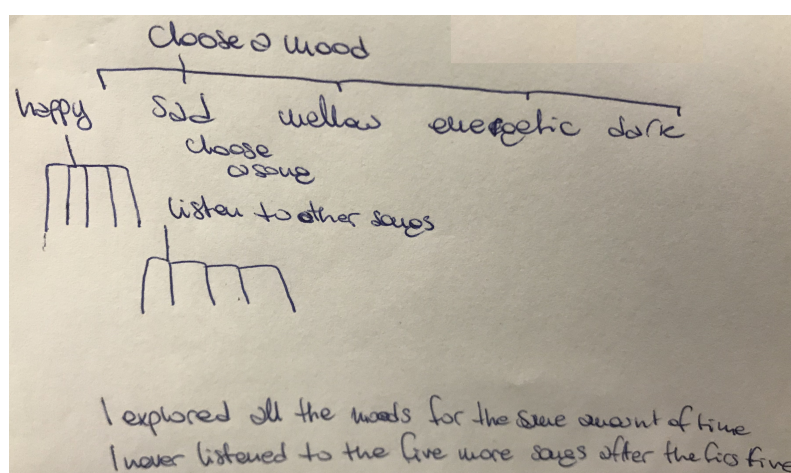 choose a mood
happy sad mellow energetic dark
choose
a song
listen to other songs
I explored all the moods for the same amount of time
I never listened to the five more songs after the firs five